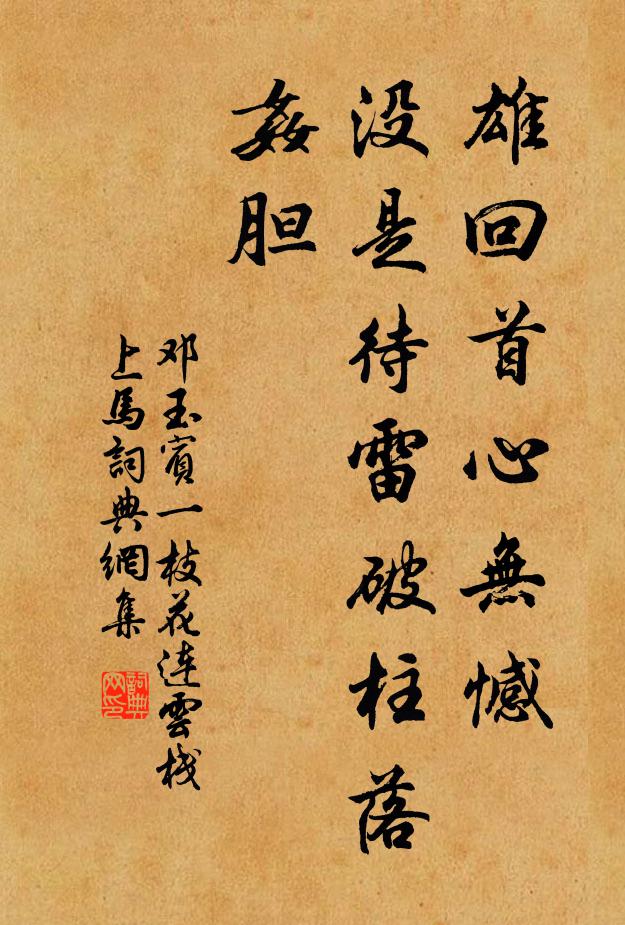 雄回首心無憾
没是待雷破柱落
姦胆
邓玉賓一枝花連雲栈
上馬詞典網集
詞典
网印